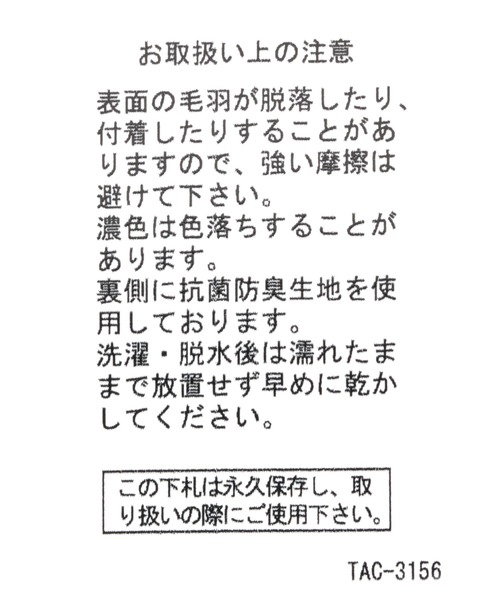 お取扱い上の注意
表面の毛羽が脱落したり、
付着したりすることがあ
りますので、強い摩擦は
避けて下さい。
濃色は色落ちすることが
あります。
裏側に抗菌防臭生地を使
用しております。
洗濯・脱水後は濡れたま
まで放置せず早めに乾か
してください。
この下札は永久保存し、取
り扱いの際にご使用下さい。
TAC-3156